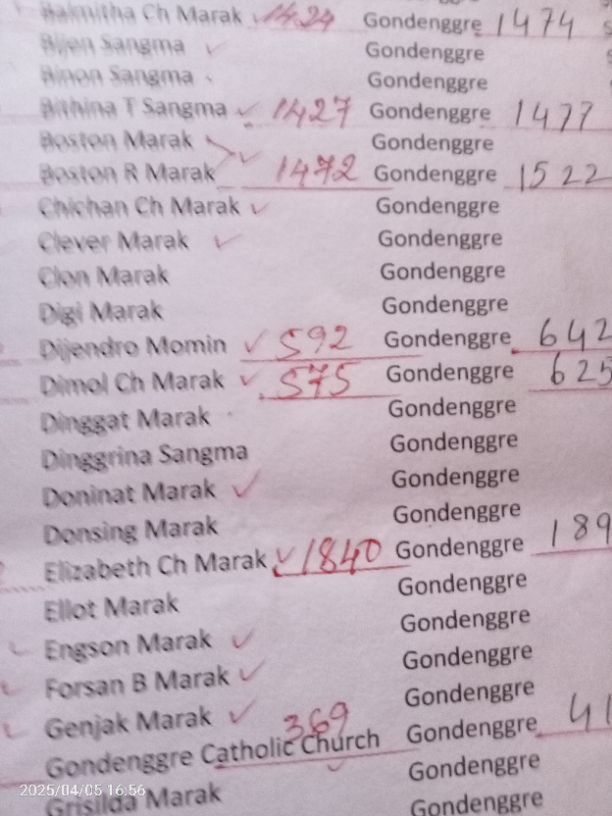 Bakmitha Ch Marak ✓ 1424 Gondenggre 1474
Bijen Sangma ✓ Gondenggre
Binon Sangma Gondenggre
Bithina T Sangma ✓ 1427 Gondenggre 1477
Boston Marak Gondenggre
Boston R Marak ✓ 1472 Gondenggre 1522
Chichan Ch Marak ✓ Gondenggre
Clever Marak ✓ Gondenggre
Clon Marak Gondenggre
Digi Marak Gondenggre
Dijendro Momin ✓ 592 Gondenggre 642
Dimol Ch Marak ✓ 575 Gondenggre 625
Dinggat Marak Gondenggre
Dinggrina Sangma Gondenggre
Doninat Marak ✓ Gondenggre
Donsing Marak Gondenggre
Elizabeth Ch Marak ✓ 1840 Gondenggre 189
Ellot Marak Gondenggre
Engson Marak ✓ Gondenggre
Forsan B Marak ✓ Gondenggre
Genjak Marak ✓ Gondenggre
Gondenggre Catholic Church 369 Gondenggre 41
Grisilda Marak ✓ Gondenggre
Gondenggre
2025/04/05 16:56